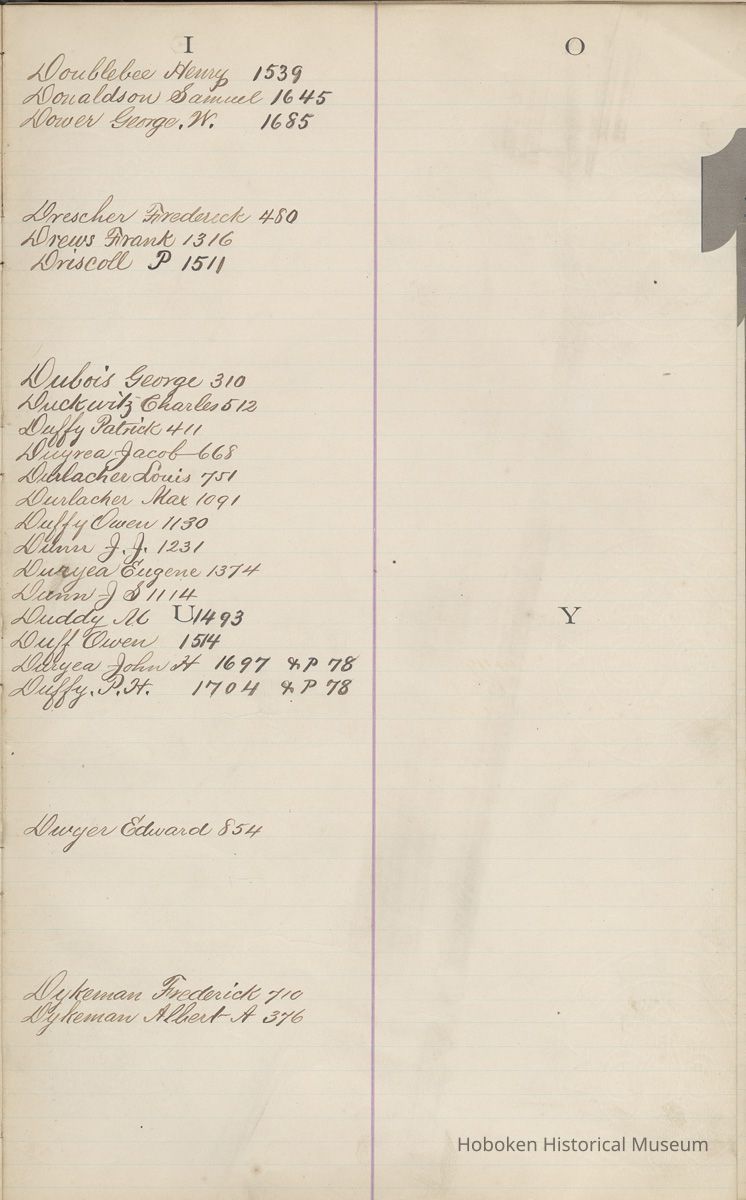 I
Doublebee Henry 1539
Donaldson Samuel 1645
Dower George. W. 1685
Drescher Frederick 480
Drews Frank 1316
Driscoll P 1511
Dubois George 310
Duckwitz Charles 512
Duffy Patrick 411
Duyrea Jacob 668
Durlacher Louis 751
Durlacher Max 1091
Duffy Owen 1130
Dunn J. J. 1231
Duryea Eugene 1374
Dunn J S 1114
Duddy M 1493
U
Duff Owen 1514
Duryea John H 1697 & P 78
Duffy. P. H. 1704 & P 78
Dwyer Edward 854
Dykeman Frederick 710
Dykeman Albert A 376
O
Y
Hoboken Historical Museum